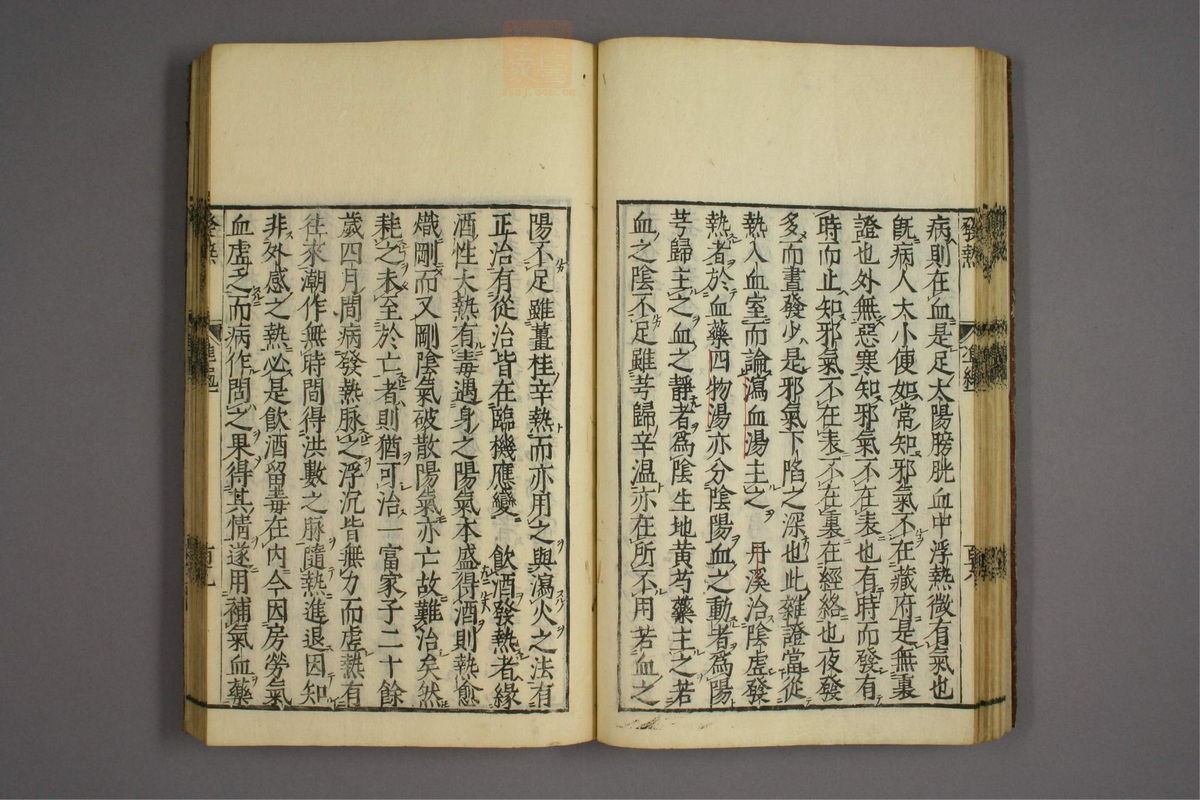 病則在血是足太陽膀胱血中浮熱微有氣也
既病人大小便如常知邪氣不在藏府是無裏
證也外無惡寒知邪氣不在表也有時而發有
時而止知邪氣不在表不在裏在經絡也夜發
多而晝發少是邪氣下陷之深也此雜證當從
熱入血室而論瀉血湯主之 丹溪治陰虛發
熱者於血藥四物湯亦分陰陽血之動者為陽
芎歸主之血之靜者為陰生地黃芍藥主之若
血之陰不足雖芎歸辛温亦在所不用若血之
陽不足雖薑桂辛熱而亦用之與瀉火之法有
正治有從治皆在臨機應變 飲酒發熱者緣
酒性大熱有毒遇身之陽氣本盛得酒則熱愈
熾剛而又剛陰氣破散陽氣亦亡故難治矣然
耗之未至於亡者則猶可治一富家子二十餘
歲四月間病發熱脉之浮沉皆無力而虛熱有
往來潮作無時間得洪數之脉隨熱進退因知
非外感之熱必是飲酒留毒在内今因房勞氣
血虛乏而病作問之果得其情遂用補氣血藥